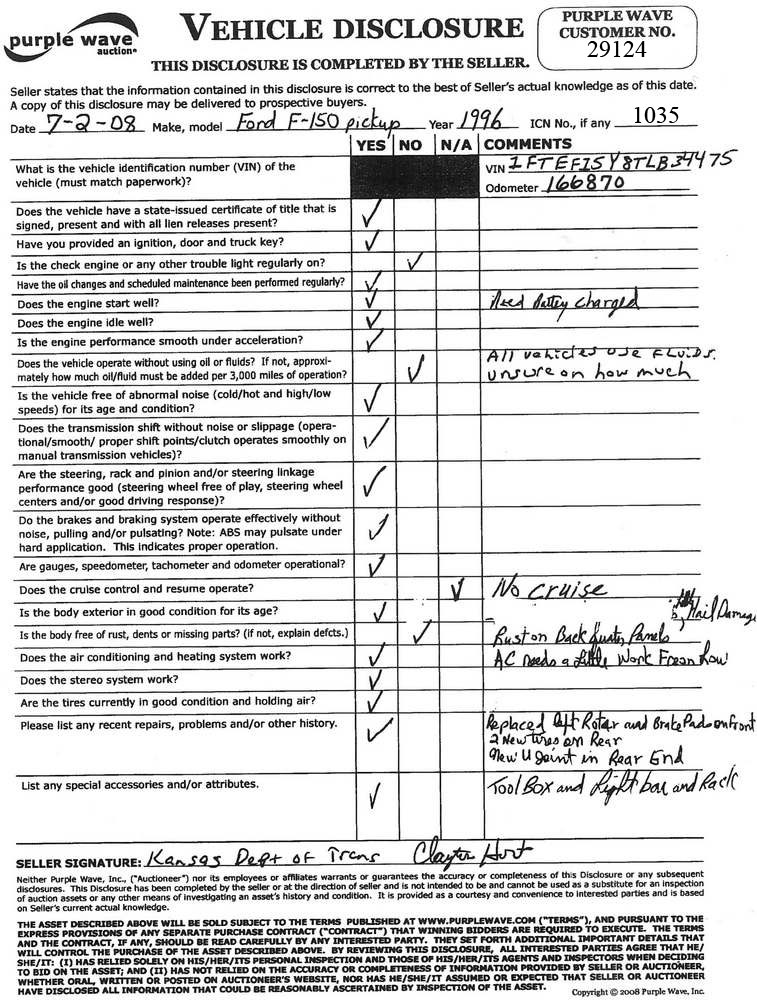 purple wave
auction®
VEHICLE DISCLOSURE
THIS DISCLOSURE IS COMPLETED BY THE SELLER.
PURPLE WAVE
CUSTOMER NO.
29124
Seller states that the information contained in this disclosure is correct to the best of Seller's actual knowledge as of this date.
A copy of this disclosure may be delivered to prospective buyers.
Date 7-2-08 Make, model Ford F-150 pickup Year 1996 ICN No., if any 1035
YES NO N/A COMMENTS
What is the vehicle identification number (VIN) of the
vehicle (must match paperwork)?
VIN 1FTEF15Y8TLB34475
Odometer 166870
Does the vehicle have a state-issued certificate of title that is
signed, present and with all lien releases present?
Have you provided an ignition, door and truck key?
Is the check engine or any other trouble light regularly on?
Have the oil changes and scheduled maintenance been performed regularly?
Does the engine start well? Need Battey Charged
Does the engine idle well?
Is the engine performance smooth under acceleration?
Does the vehicle operate without using oil or fluids? If not, approxi-
mately how much oil/fluid must be added per 3,000 miles of operation?
All vehicles use FLuids.
unsure on how much
Is the vehicle free of abnormal noise (cold/hot and high/low
speeds) for its age and condition?
Does the transmission shift without noise or slippage (opera-
tional/smooth/ proper shift points/clutch operates smoothly on
manual transmission vehicles)?
Are the steering, rack and pinion and/or steering linkage
performance good (steering wheel free of play, steering wheel
centers and/or good driving response)?
Do the brakes and braking system operate effectively without
noise, pulling and/or pulsating? Note: ABS may pulsate under
hard application. This indicates proper operation.
Are gauges, speedometer, tachometer and odometer operational?
Does the cruise control and resume operate? No Cruise
Is the body exterior in good condition for its age? Hail Damage
Is the body free of rust, dents or missing parts? (if not, explain defcts.) Rust on Back Quater Panels
Does the air conditioning and heating system work? AC needs a Little Work Freon Low
Does the stereo system work?
Are the tires currently in good condition and holding air?
Please list any recent repairs, problems and/or other history.
Replaced left Rotar and Brake Pads on Front
2 New tires on Rear
New U Joint in Rear End
List any special accessories and/or attributes. Tool Box and Light bar and Rack
SELLER SIGNATURE: Kansas Dept of Trans Clayton Hort
Neither Purple Wave, Inc., ("Auctioneer") nor its employees or affiliates warrants or guarantees the accuracy or completeness of this Disclosure or any subsequent
disclosures. This Disclosure has been completed by the seller or at the direction of seller and is not intended to be and cannot be used as a substitute for an inspection
of auction assets or any other means of investigating an asset's history and condition. It is provided as a courtesy and convenience to interested parties and is based
on Seller's current actual knowledge.
THE ASSET DESCRIBED ABOVE WILL BE SOLD SUBJECT TO THE TERMS PUBLISHED AT WWW.PURPLEWAVE.COM ("TERMS"), AND PURSUANT TO THE
EXPRESS PROVISIONS OF ANY SEPARATE PURCHASE CONTRACT ("CONTRACT") THAT WINNING BIDDERS ARE REQUIRED TO EXECUTE. THE TERMS
AND THE CONTRACT, IF ANY, SHOULD BE READ CAREFULLY BY ANY INTERESTED PARTY. THEY SET FORTH ADDITIONAL IMPORTANT DETAILS THAT
WILL CONTROL THE PURCHASE OF THE ASSET DESCRIBED ABOVE. BY REVIEWING THIS DISCLOSURE, ALL INTERESTED PARTIES AGREE THAT HE/
SHE/IT: (I) HAS RELIED SOLELY ON HIS/HER/ITS PERSONAL INSPECTION AND THOSE OF HIS/HER/ITS AGENTS AND INSPECTORS WHEN DECIDING
TO BID ON THE ASSET; AND (II) HAS NOT RELIED ON THE ACCURACY OR COMPLETENESS OF INFORMATION PROVIDED BY SELLER OR AUCTIONEER,
WHETHER ORAL, WRITTEN OR POSTED ON AUCTIONEER'S WEBSITE, NOR HAS HE/SHE/IT ASSUMED OR EXPECTED THAT SELLER OR AUCTIONEER
HAVE DISCLOSED ALL INFORMATION THAT COULD BE REASONABLY ASCERTAINED BY INSPECTION OF THE ASSET.
Copyright © 2008 Purple Wave, Inc.